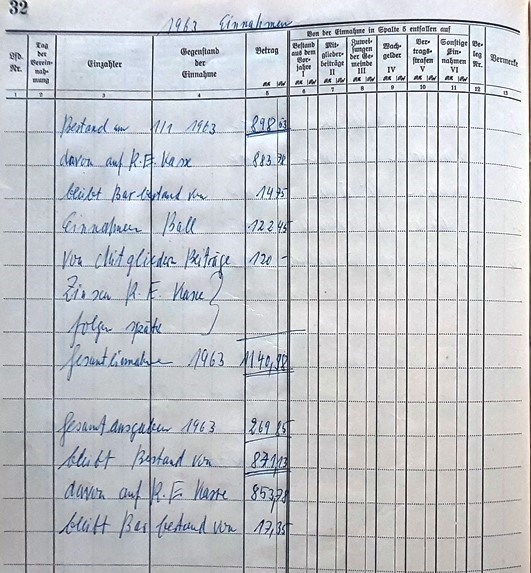 32
1963 Einnahmen
Lfd. Nr.
Tag der Vereinnahmung
Einzahler
Gegenstand der Einnahme
Betrag
Von der Einnahme in Spalte 5 entfallen auf
Bestand aus dem Vorjahre I
Mitgliederbeiträge II
Zuweisungen der Gemeinde III
Wachgelder IV
Vertragsstrafen V
Sonstige Einnahmen VI
Beleg Nr.
Vermerke
1 2 3 4 5 6 7 8 9 10 11 12 13
Bestand am 1/1 1963 898 53
davon auf K.E. Kasse 883.78
bleibt Barbestand von 14 75
Einnahmen Ball 122 45
von Mitglieder Beiträge 120 -
Zinsen K.E. Kasse
folgen später
Gesamteinnahme 1963 1140,98
Gesamtausgaben 1963 269 85
bleibt Bestand von 871,13
davon auf K.E. Kasse 853,78
bleibt Bar bestand von 17,35